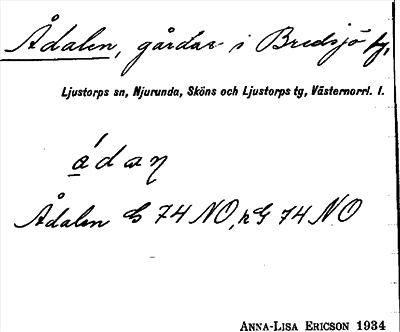 Ådalen, gårdar i Bredsjö by,
Ljustorps sn, Njurunda, Sköns och Ljustorps tg, Västernorrl. l.
ádaŋ
Ådalen G 74 NO, hG 74 NO
ANNA-LISA ERICSON 1934